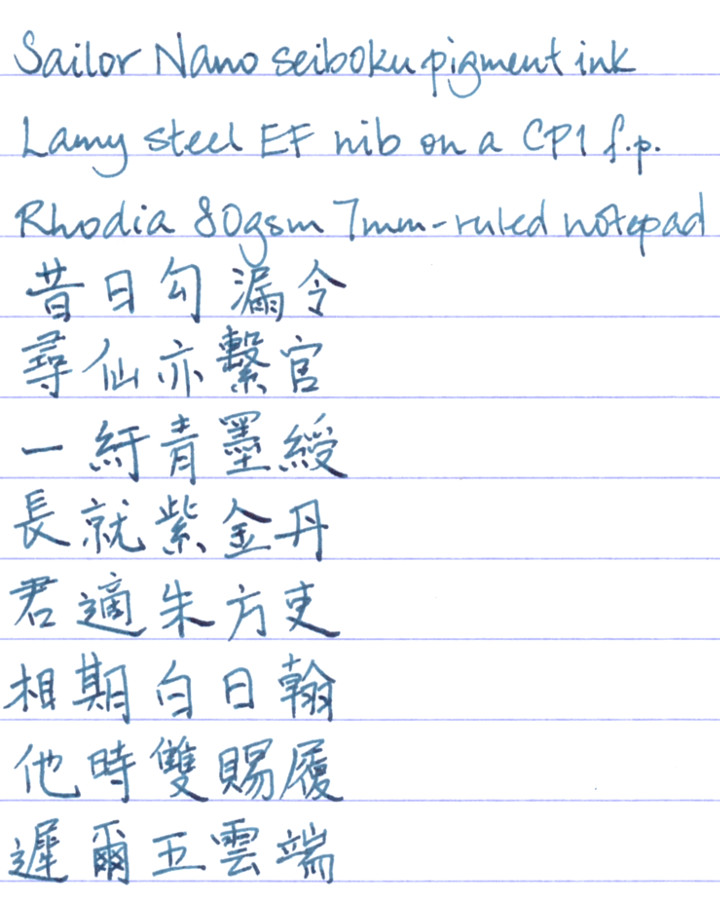 Sailor Nano seiboku pigment ink
Lamy steel EF nib on a CP1 f.p.
Rhodia 80gsm 7mm-ruled notepad
昔日勾漏令
尋仙亦繫官
一紆青墨綬
長就紫金丹
君適朱方吏
相期白日翰
他時雙賜履
遲爾五雲端